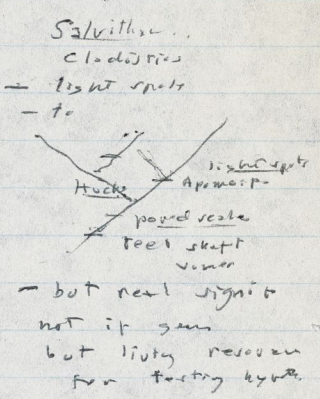 Salvithx...
Cladistics
- light spots
- to
light spots
Hucho
Apomorp.
pored scale
teel shaft
vomer
- but real signif
not if gen
but living resource
for testing hypoth.